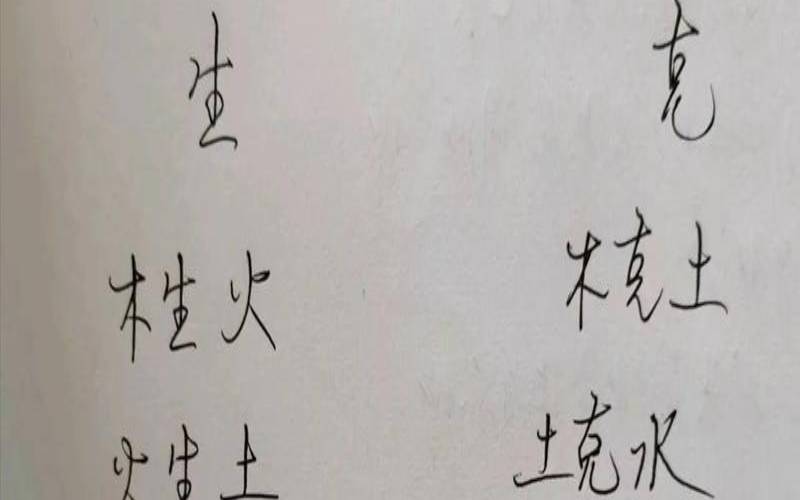 生 克
木生火 木克土
火生土 土克水